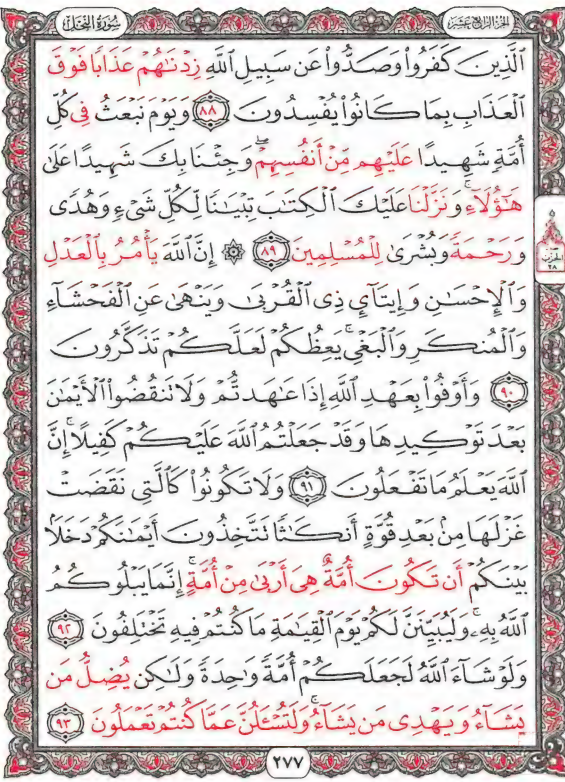 الجزء الرابع عشر
سورة النحل
الَّذِينَ كَفَرُوا۟ وَصَدُّوا۟ عَن سَبِيلِ ٱللَّهِ زِدْنَٰهُمْ عَذَابًا فَوْقَ
ٱلْعَذَابِ بِمَا كَانُوا۟ يُفْسِدُونَ ٨٨ وَيَوْمَ نَبْعَثُ فِى كُلِّ
أُمَّةٍ شَهِيدًا عَلَيْهِم مِّنْ أَنفُسِهِمْ ۖ وَجِئْنَا بِكَ شَهِيدًا عَلَىٰ
هَٰٓؤُلَآءِ ۚ وَنَزَّلْنَا عَلَيْكَ ٱلْكِتَٰبَ تِبْيَٰنًا لِّكُلِّ شَىْءٍ وَهُدًى
وَرَحْمَةً وَبُشْرَىٰ لِلْمُسْلِمِينَ ٨٩ ۞ إِنَّ ٱللَّهَ يَأْمُرُ بِٱلْعَدْلِ
وَٱلْإِحْسَٰنِ وَإِيتَآئِ ذِى ٱلْقُرْبَىٰ وَيَنْهَىٰ عَنِ ٱلْفَحْشَآءِ
وَٱلْمُنكَرِ وَٱلْبَغْىِ ۚ يَعِظُكُمْ لَعَلَّكُمْ تَذَكَّرُونَ
٩٠ وَأَوْفُوا۟ بِعَهْدِ ٱللَّهِ إِذَا عَٰهَدتُّمْ وَلَا تَنقُضُوا۟ ٱلْأَيْمَٰنَ
بَعْدَ تَوْكِيدِهَا وَقَدْ جَعَلْتُمُ ٱللَّهَ عَلَيْكُمْ كَفِيلًا ۚ إِنَّ
ٱللَّهَ يَعْلَمُ مَا تَفْعَلُونَ ٩١ وَلَا تَكُونُوا۟ كَٱلَّتِى نَقَضَتْ
غَزْلَهَا مِنۢ بَعْدِ قُوَّةٍ أَنكَٰثًا تَتَّخِذُونَ أَيْمَٰنَكُمْ دَخَلًۢا
بَيْنَكُمْ أَن تَكُونَ أُمَّةٌ هِىَ أَرْبَىٰ مِنْ أُمَّةٍ ۚ إِنَّمَا يَبْلُوكُمُ
ٱللَّهُ بِهِۦ ۚ وَلَيُبَيِّنَنَّ لَكُمْ يَوْمَ ٱلْقِيَٰمَةِ مَا كُنتُمْ فِيهِ تَخْتَلِفُونَ ٩٢
وَلَوْ شَآءَ ٱللَّهُ لَجَعَلَكُمْ أُمَّةً وَٰحِدَةً وَلَٰكِن يُضِلُّ مَن
يَشَآءُ وَيَهْدِى مَن يَشَآءُ ۚ وَلَتُسْـَٔلُنَّ عَمَّا كُنتُمْ تَعْمَلُونَ ٩٣
الحزب
٢٨
٢٧٧